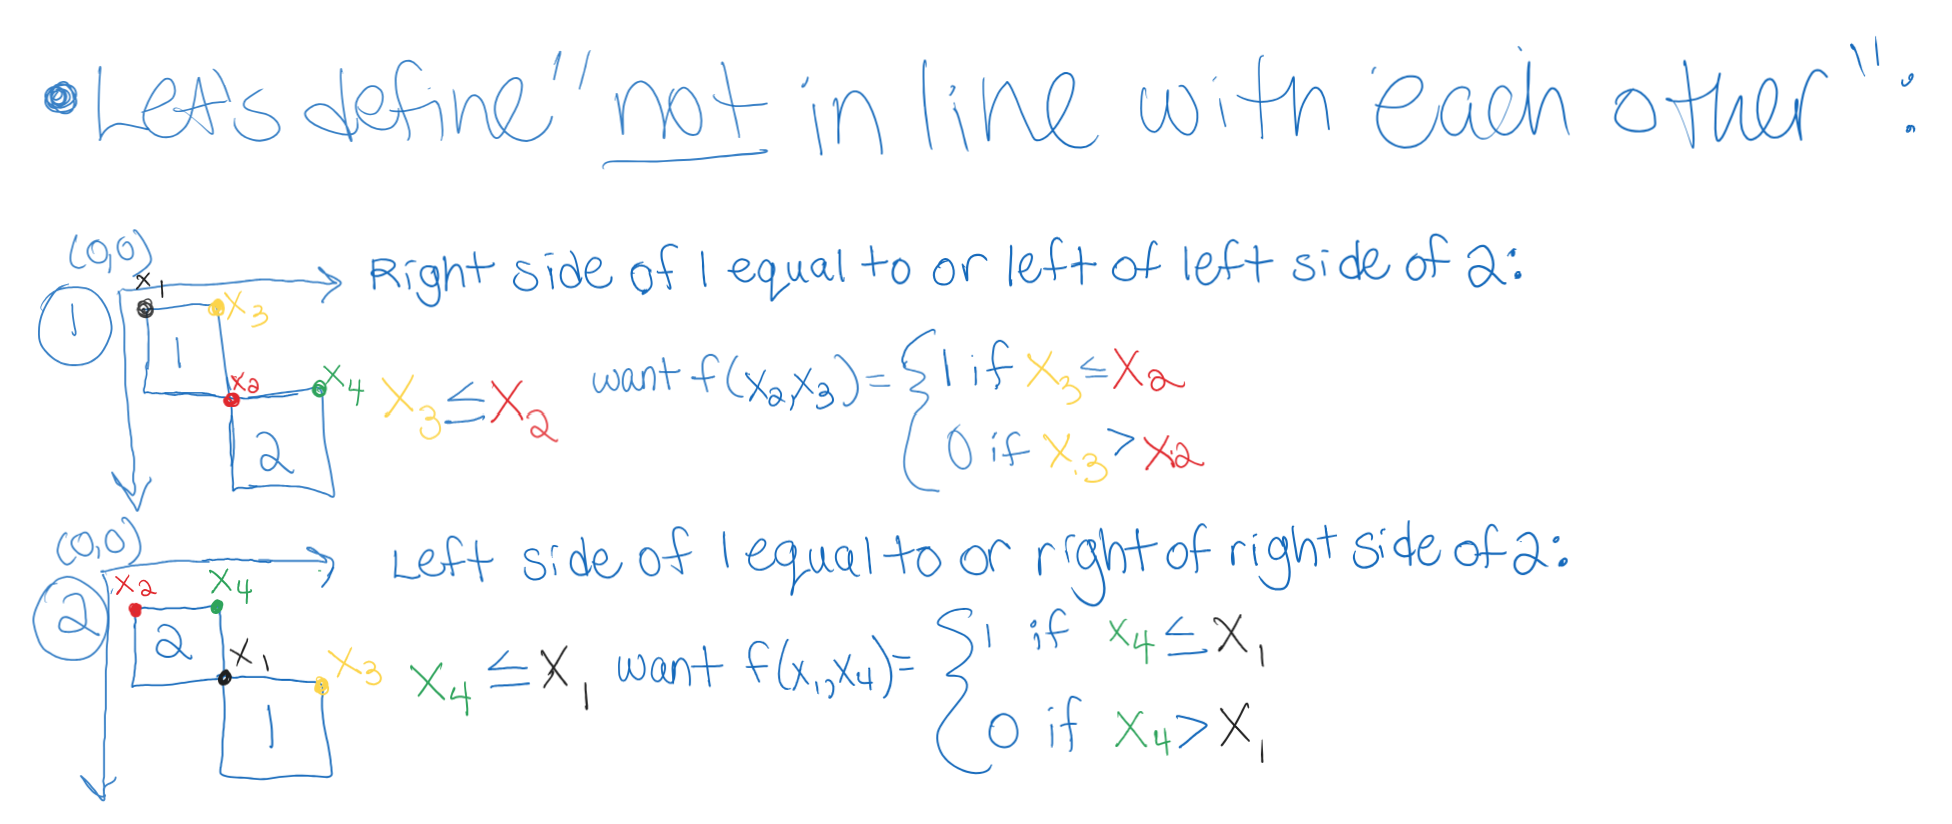 • Let's define "not in line with each other":
(0,0)
x₁
Right side of 1 equal to or left of left side of 2:
1
x₃
1
want f(x₂,x₃)= { 1 if x₃≤x₂
x₂
x₄
x₃≤x₂
0 if x₃>x₂
2
(0,0)
Left side of 1 equal to or right of right side of 2:
x₂
x₄
2
2
x₁
x₃
x₄≤x₁
want f(x₁,x₄)= { 1 if x₄≤x₁
0 if x₄>x₁
1